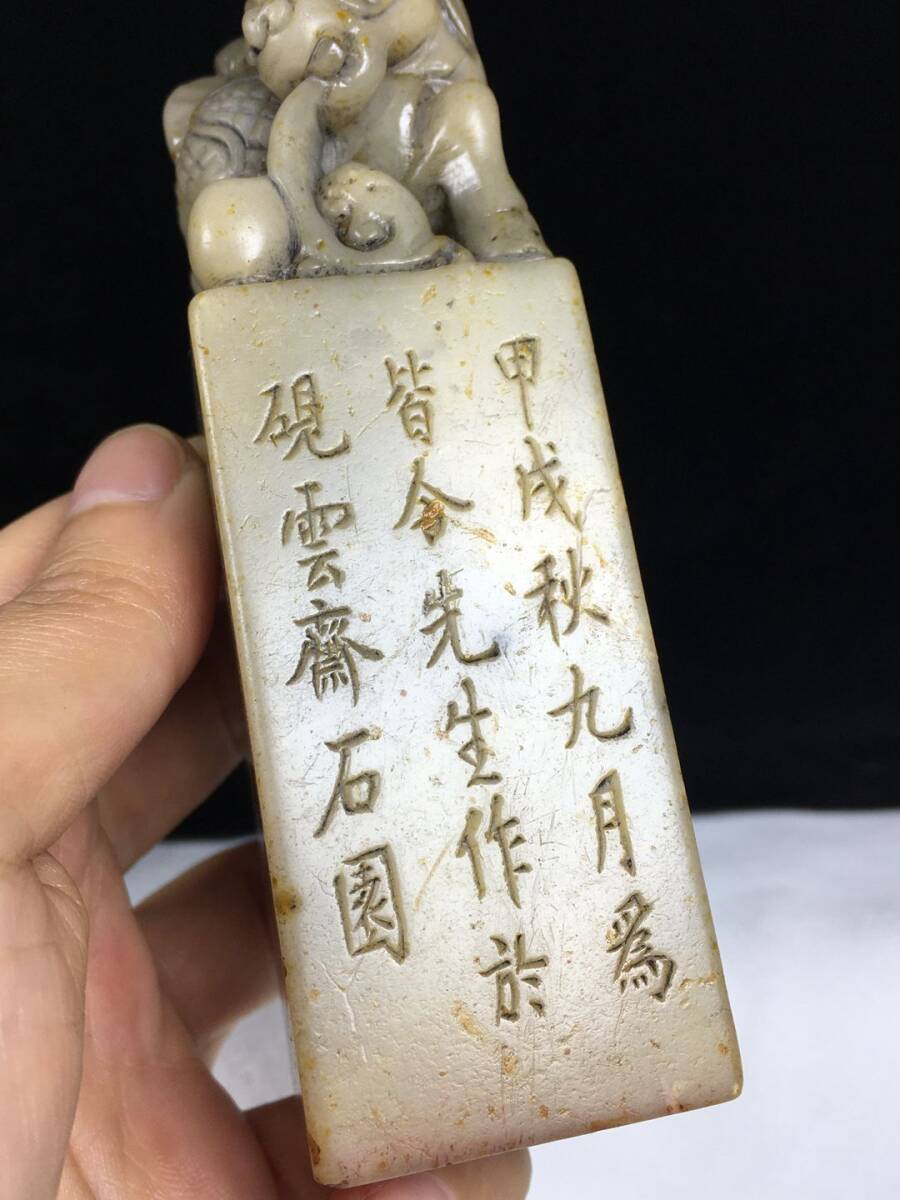 甲戌秋九月為
皆令先生作於
硯雲齋石園